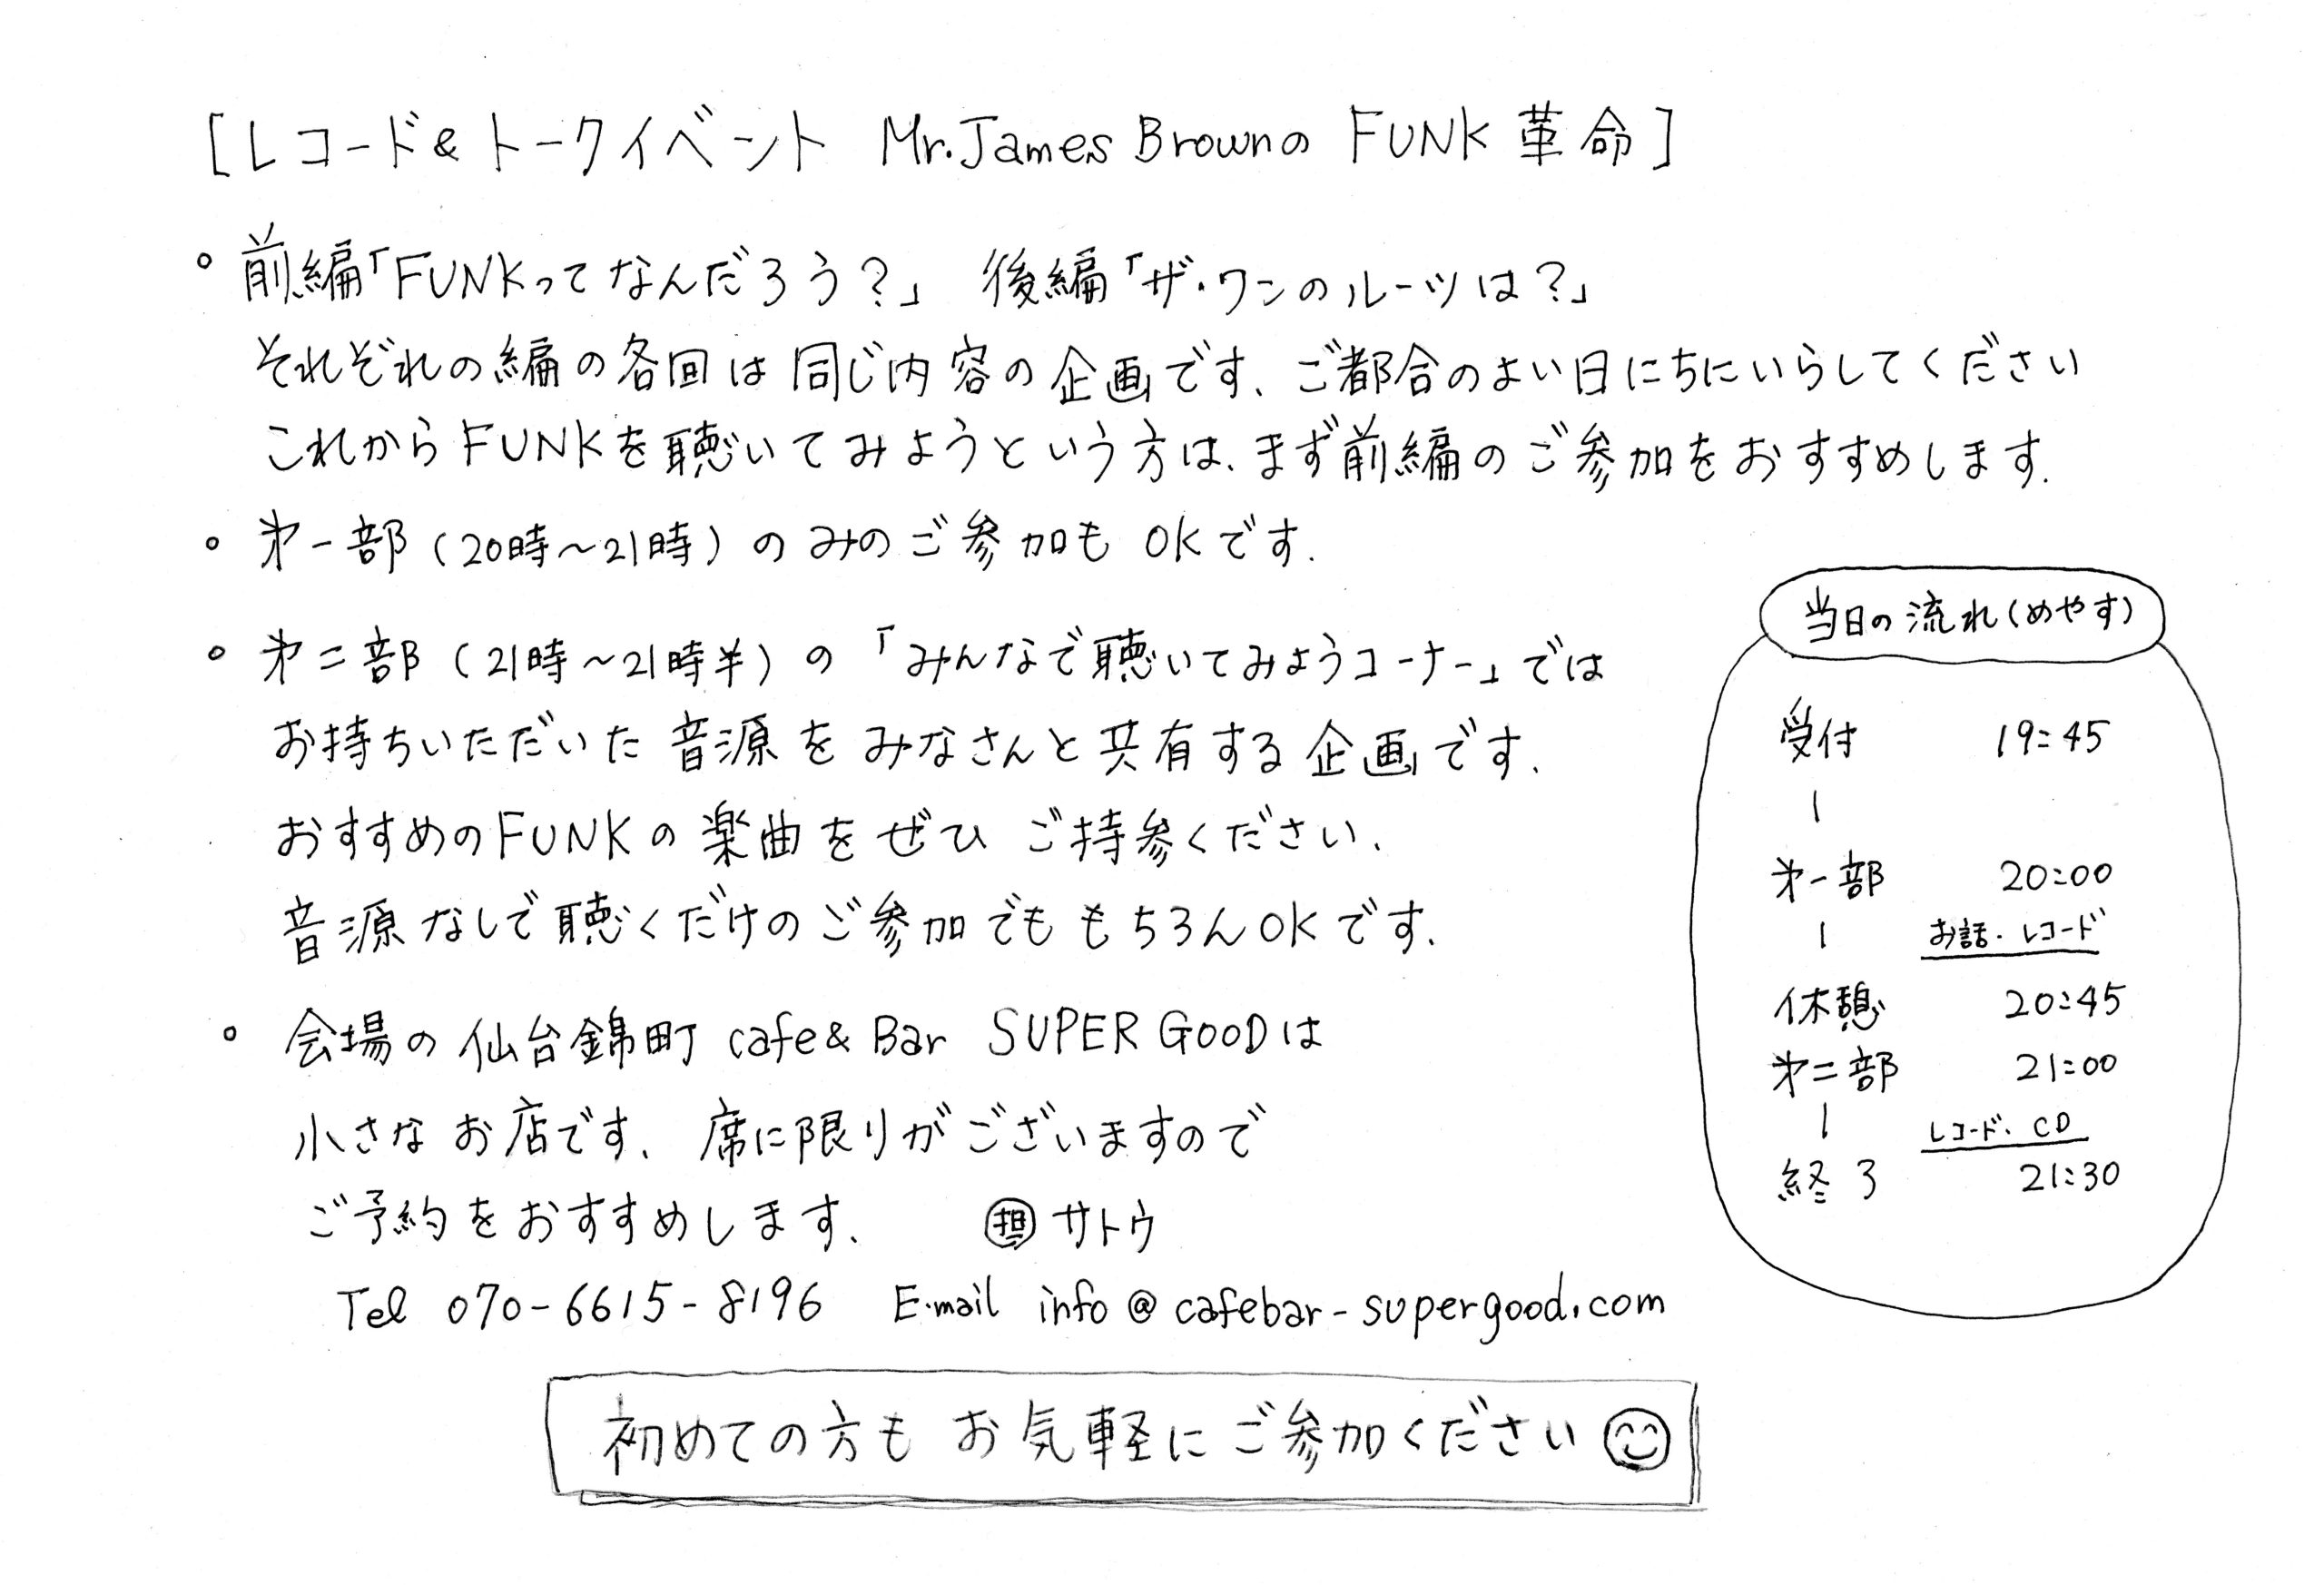 [レコード&トークイベント Mr.James Brownの FUNK 革命]
。前編「FUNKってなんだろう?」 後編「ザ・ワンのルーツは?」
それぞれの編の各回は同じ内容の企画です、ご都合のよい日にちにいらしてください
これからFUNKを聴いてみようという方は、まず前編のご参加をおすすめします.
。第一部(20時〜21時)のみのご参加もOKです.
。第二部(21時〜21時半)の「みんなで聴いてみようコーナー」では
お持ちいただいた音源をみなさんと共有する企画です.
おすすめのFUNKの楽曲をぜひご持参ください、
音源なしで聴くだけのご参加でももちろんOKです.
。会場の仙台錦町 cafe& Bar SUPER GOODは
小さなお店です、席に限りがございますので
ご予約をおすすめします、 ㊐担 サトウ
Tel 070-6615-8196 E-mail info@cafebar-supergood.com
初めての方もお気軽にご参加ください
当日の流れ(めやす)
受付 19:45
|
第一部 20:00
| お話・レコード
休憩 20:45
第二部 21:00
| レコード・CD
終了 21:30